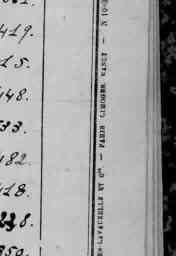 419.
15.
448.
33.
482.
418.
238.
350.
S-LAVAUZELLE ET Cie. — PARIS LIMOGES NANCY — N 10-